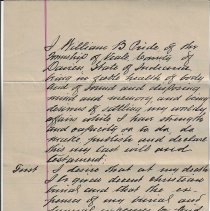 I William B Pride of the
Township of Veale County of
Daviess State of Indiana
being in good health of body
and of sound and disposing
mind and memory and being
desirous of settling my worldly
affairs while I have strength
and capacity so to do, do
make publish and declare
this my last will and
testament.
First I desire that at my death
be given decent christian
burial and that the ex-
penses of my burial and
funeral